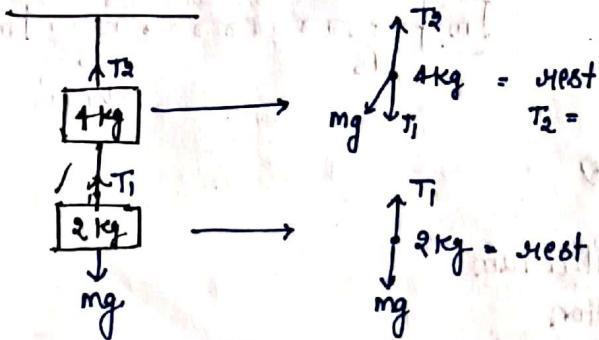 T2
4kg
T1
2kg
mg
T2
4kg = rest
mg
T1
T2 =
T1
2kg = rest
mg